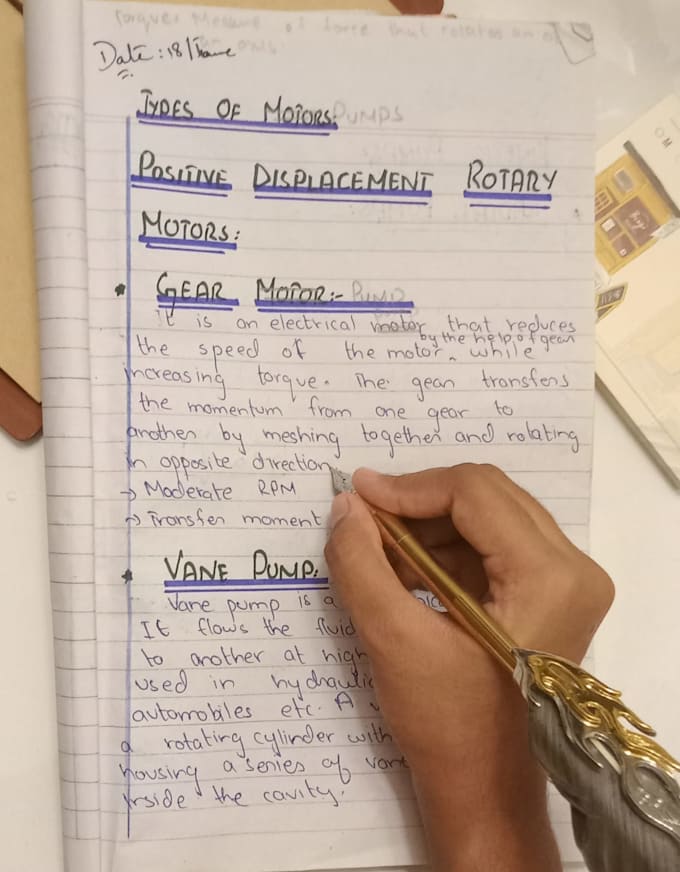 Torque: Measure of force that rotates an o
Date: 18/June
TYPES OF MOTORS: PUMPS
POSITIVE DISPLACEMENT ROTARY
MOTORS:
GEAR MOTOR:- PUMP
It is an electrical motor that reduces
the speed of the motor by the help of gear while
increasing torque. The gear transfers
the momentum from one gear to
another by meshing together and rotating
in opposite direction
→ Moderate RPM
→ Transfer moment
VANE PUMP:
Vane pump is a
It flows the fluid
to another at high
used in hydraulic
automobiles etc. A
a rotating cylinder with
housing a series of vane
inside the cavity.